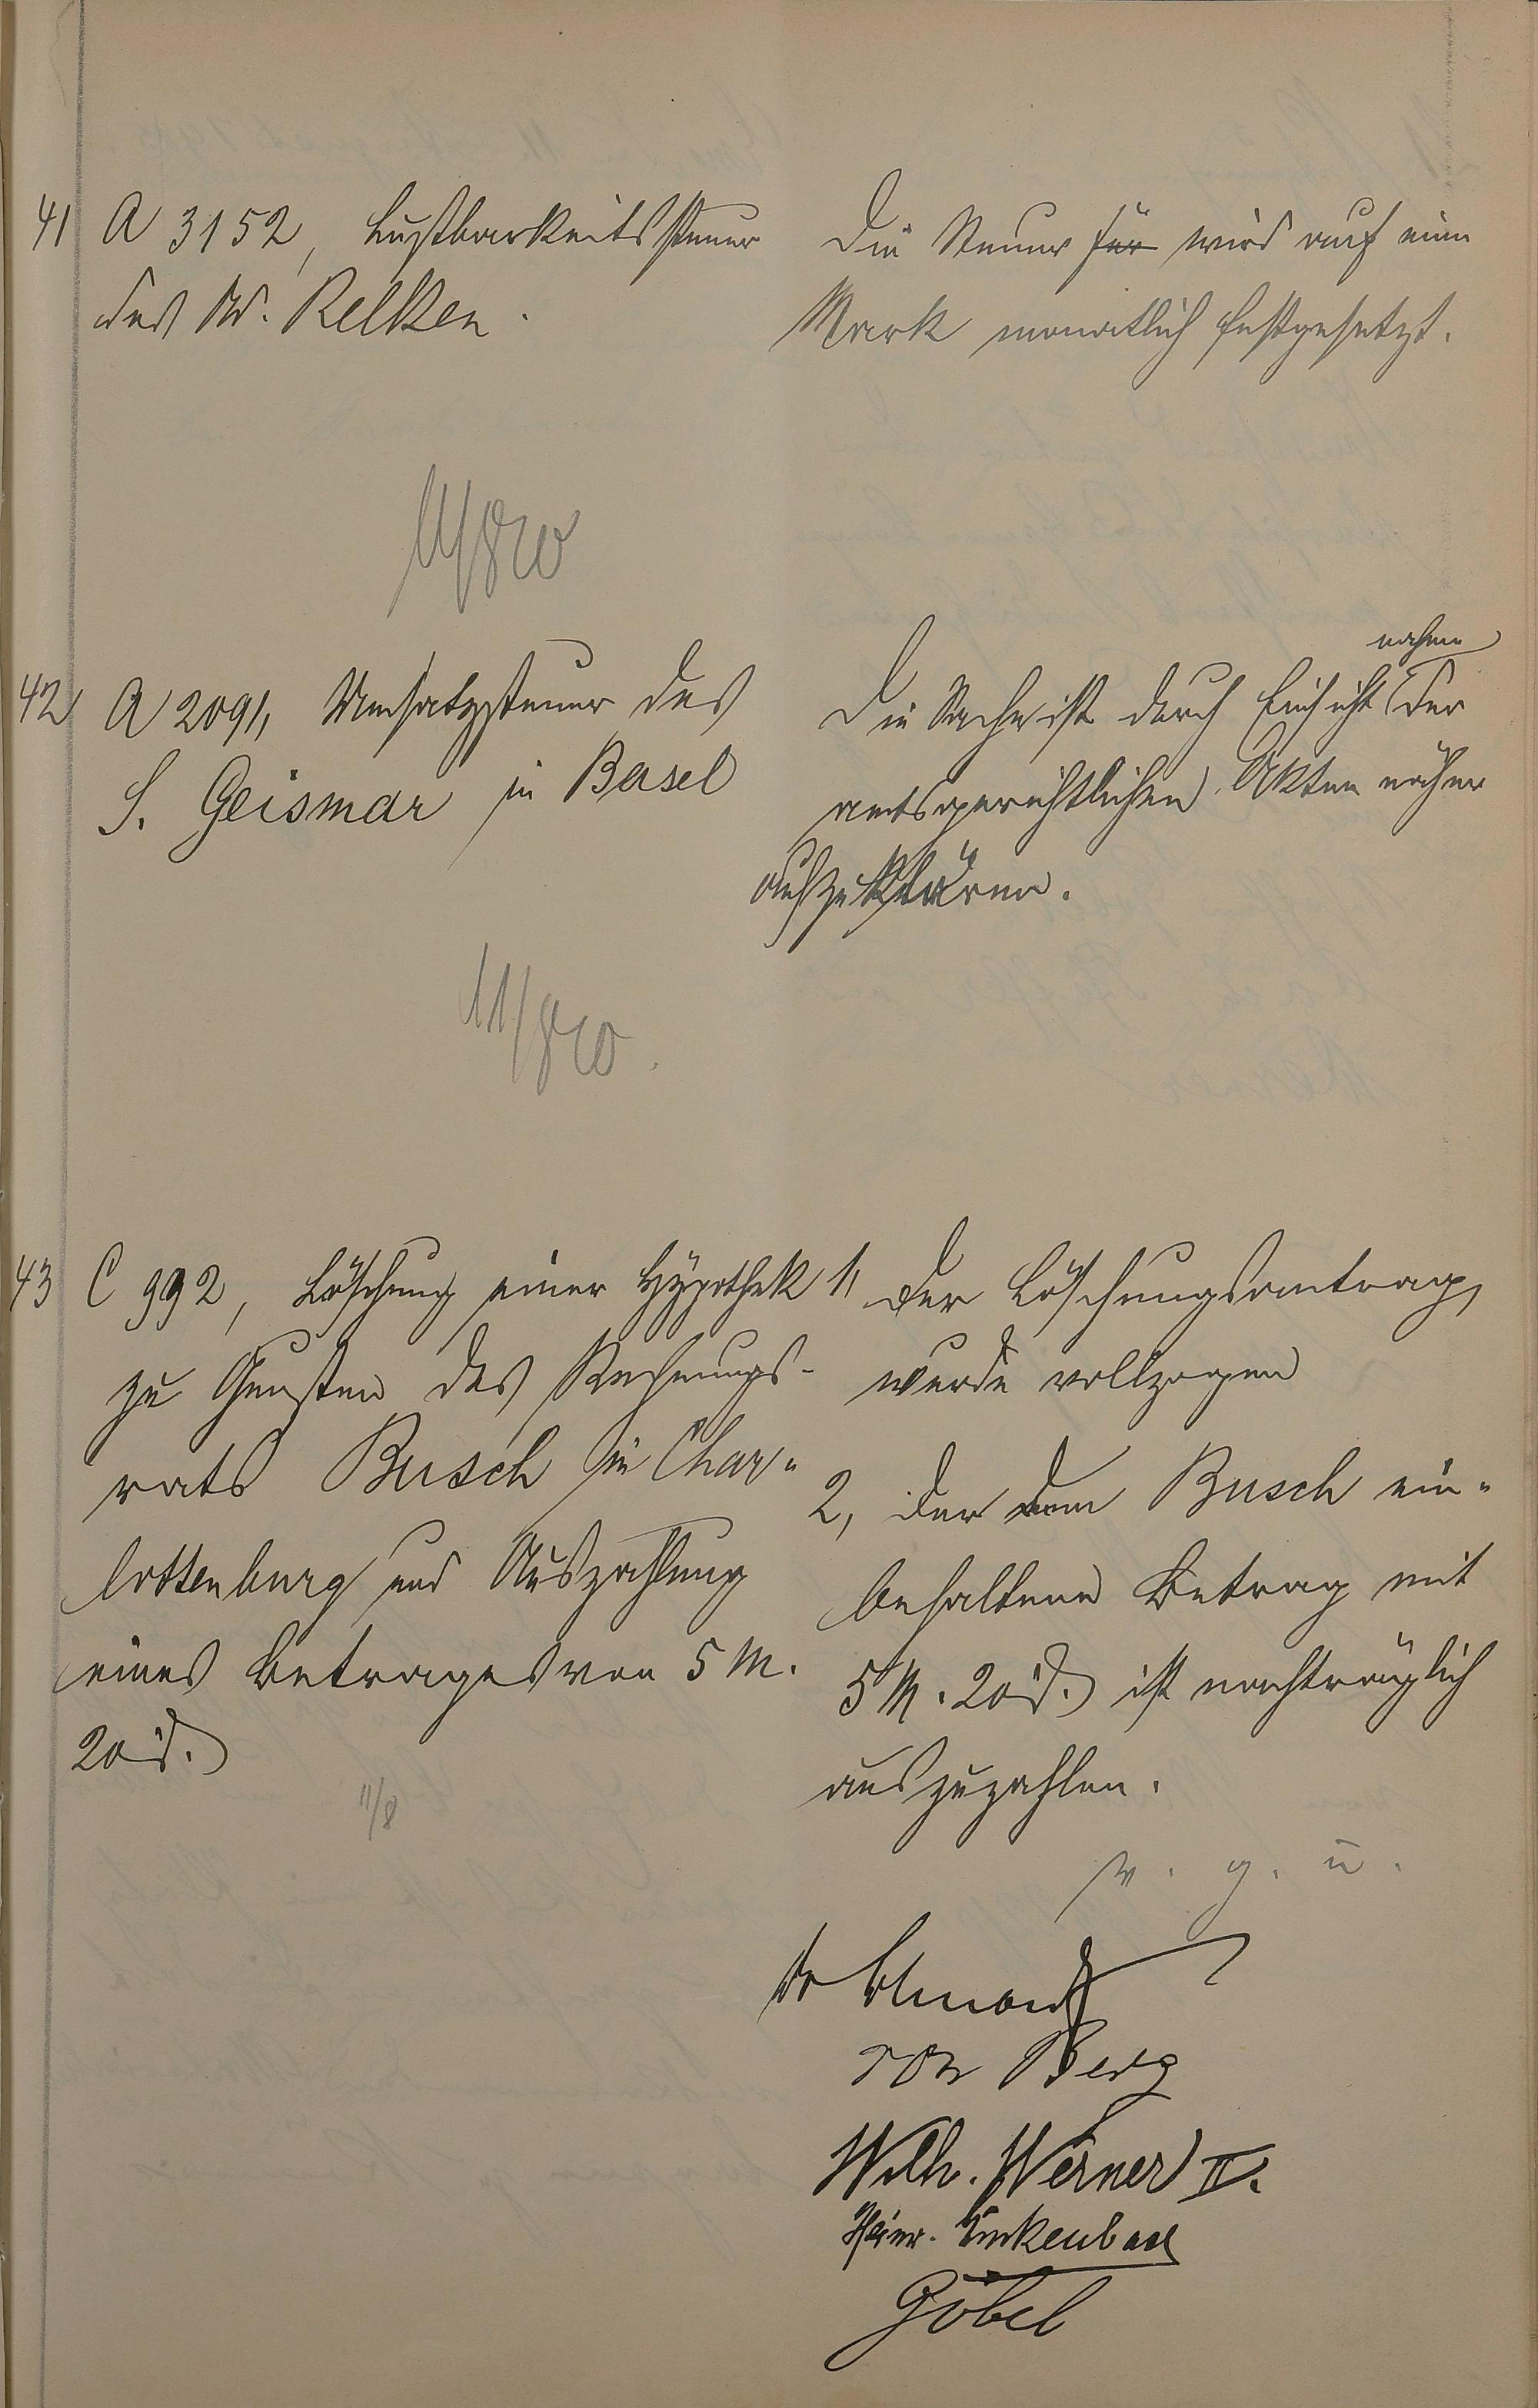 41 A 3152, Lustbarkeitssteuer
des W. Relken.
Die Steuer für wird auf eine
Mark monatlich festgesetzt.
11/8 20
42 A 2091, Umsatzsteuer des
S. Geismar in Basel
nahme
Die Sache ist durch Einsicht der
amtsgerichtlichen Akten näher
aufzuklären.
11/8 20.
43 C 992, Löschung einer Hypothek
zu Gunsten des Rechnungs-
rats Busch in Char-
lottenburg und Auszahlung
eines Betrages von 5 M.
20 d.
11/8
1, der Löschungsantrag
wurde vollzogen
2, der dem Busch ein-
behaltene Betrag mit
5 M. 20 d. ist nachträglich
auszuzahlen.
v. g. u.
von Berg
Wilh. Werner II.
Göbel